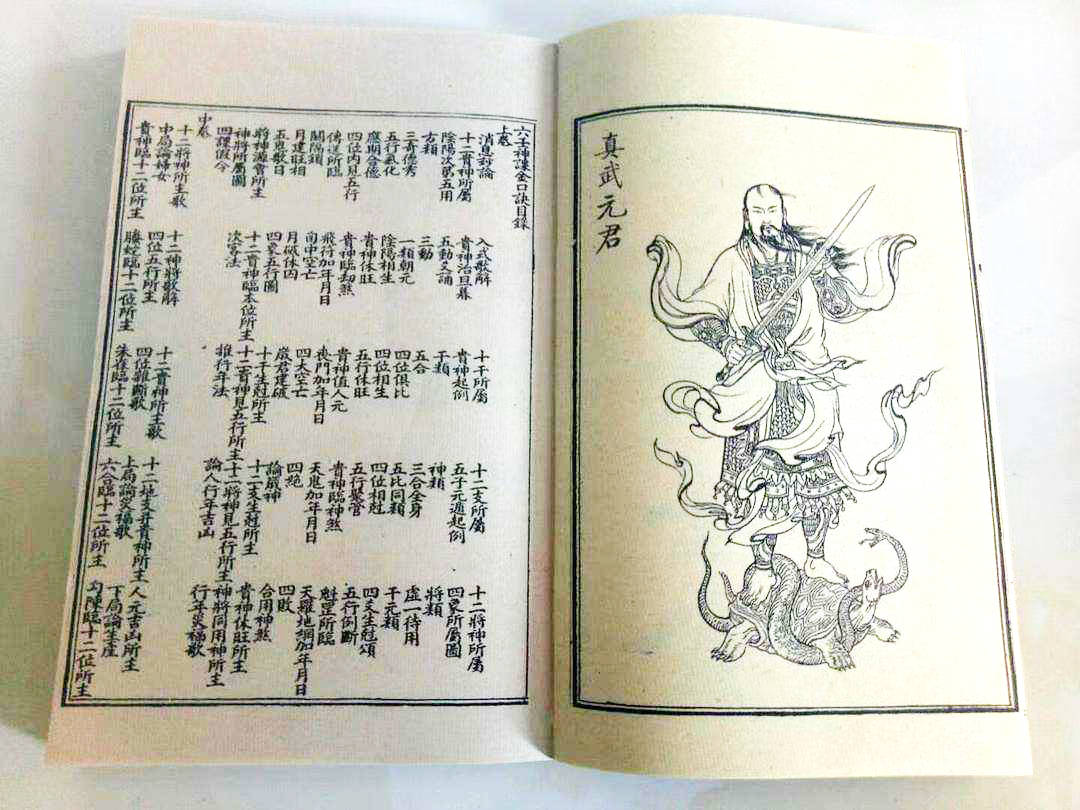 真武元君
六壬神課金口訣目錄
上卷
消息詩論 入式歌解 十干所屬 十二支所屬 十二將神所屬
十二貴神所屬 貴神治旦暮 貴神起例 五子元遁起例 四象所屬圖
陰陽次第五用 五動爻誦 干類 神類 將類
方類 三動 五合 三合全身 虛一待用
三奇德秀 一類朝元 四位俱比 五比同類 干元類
五行氣化 陰陽相生 四位相生 四位相尅 四爻生尅頌
應期合德 貴神休旺 五行休旺 五行聚管 五行例斷
四位內見五行 貴神臨劫煞 貴神值人元 貴神臨神煞 魁罡所臨
傳送所臨 飛符加年月日 喪門加年月日 天鬼加年月日 天羅地網加年月日
關隔鎖 旬中空亡 四大空亡 四絕 四敗
月建旺相 月破休囚 歲君建破 論歲神 合用神煞
五鬼歌日 四象五行圖 十干生尅所主 十二支生尅所主 貴神休旺所主
將神源會所主 十二貴神臨本位所主 十二貴神見五行所主 十二將神見五行所主 神將同用神所主
神將所屬圖 次客法 推行年法 論人行年吉凶 行年災福歌
四課假令
中卷
十二將神所主歌 十二神將歌解 十二貴神所主歌 十二地支并貴神所主 人元吉凶所主
中局論婦女 四位五行所主 四位雜斷歌 上局論災福歌 下局論生產
貴神臨十二位所主 螣蛇臨十二位所主 朱雀臨十二位所主 六合臨十二位所主 勾陳臨十二位所主